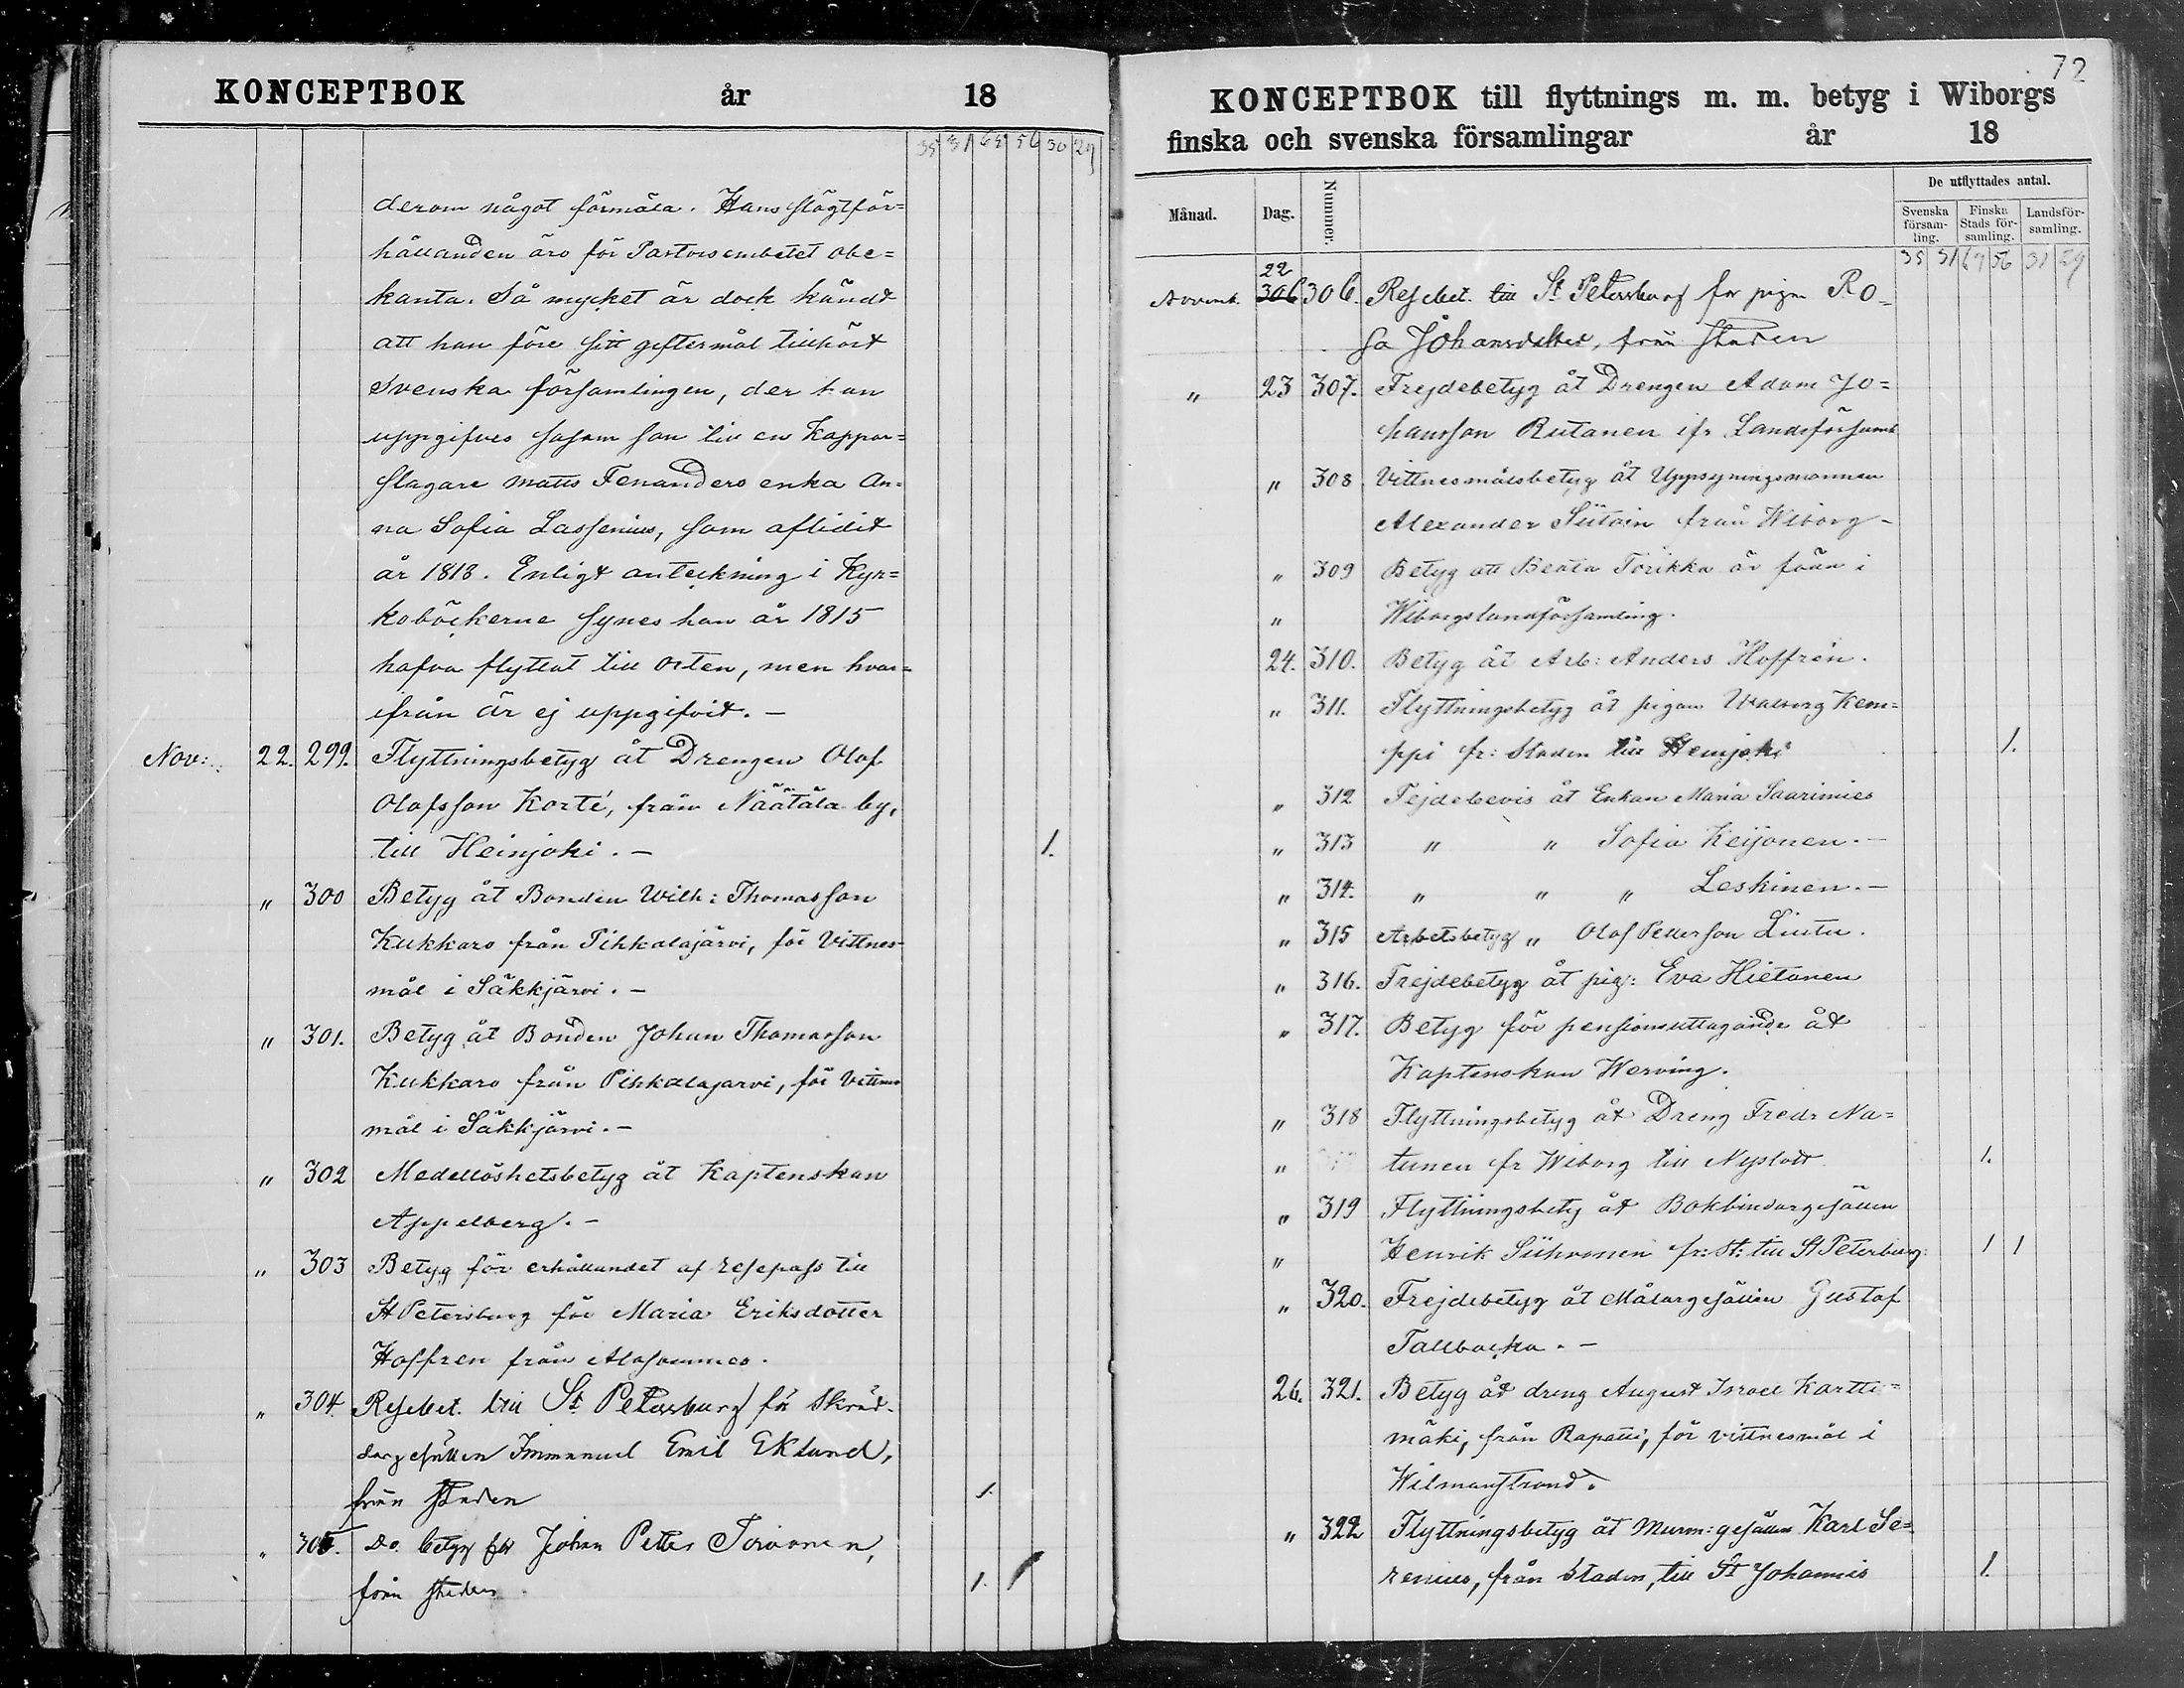 KONCEPTBOK år 18
35 31 64 56 30 29
derom något förmäla. Hans slägtför=
hållanden äro för Pastorsembetet obe=
kanta. Så mycket är dock kändt
att han före sitt giftermål tillhört
Svenska församlingen, der han
uppgifves såsom son till en Kappar=
slagare Matts Fenanders enka An=
na Sofia Lassenius, som aflidit
år 1818. Enligt anteckning i Kyr=
koböckerne synes han år 1815
hafva flyttat till orten, men hvar=
ifrån är ej uppgifvit. —
Nov: 22. 299. Flyttningsbetyg åt Drengen Olof
Olofsson Korte, från Näätälä by,
till Heinjoki. — 1.
" 300 Betyg åt Bonden Wilh: Thomasson
Kukkaro från Pihkalajärvi, för Vittnes-
mål i Säkkjärvi. —
" 301. Betyg åt Bonden Johan Thomasson
Kukkaro från Pihkalajarvi, för Vittnes
mål i Säkkjärvi. —
" 302 Medellöshetsbetyg åt Kaptenskan
Appelberg. —
" 303 Betyg för erhållandet af resepass till
St Petersburg för Maria Eriksdotter
Hoffren från Alasommes.
" 304. Resebet. till St Petersburg för Skräd-
dargesällen Immanuel Emil Eklund,
från staden 1.
" 305. Do. betyg för Johan Petter Toivonen,
från staden 1. 1
72
KONCEPTBOK till flyttnings m. m. betyg i Wiborgs
finska och svenska församlingar år 18
Månad. Dag. Nummer. De utflyttades antal.
Svenska församling. Finska Stads församling. Landsförsamling.
35 31 64 56 31 29
Novemb. 22 306 306. Resebet. till St Petersburg för pigan Ro-
sa Johansdotter, från staden
" 23 307. Frejdebetyg åt Drengen Adam Jo=
hansson Rutanen ifr. Landsförsaml
" 308 Vittnesmålsbetyg åt Uppsyningsmannen
Alexander Siitoin från Wiborg-
" 309 Betyg att Beata Törikka är från i
" Wiborgs landsförsamling.
24. 310. Betyg åt Arb: Anders Hoffrén.
" 311. Flyttningsbetyg åt pigan Walborg Kem=
ppi fr: Staden till Heinjoki 1.
" 312 Fejdebevis åt Enkan Maria Saarimies
" 313 " " Sofia Keijonen. —
" 314. " " " Leskinen. —
" 315 Arbetsbetyg " Olof Petterson Lintu.
" 316. Frejdebetyg åt pig: Eva Hietanen
" 317. Betyg för pensionsuttagande åt
Kaptenskan Werving.
" 318 Flyttningsbetyg åt Dreng Fredr Na=
" tunen fr Wiborg till Nyslott 1.
" 319 Flyttningsbetyg åt Bokbindargesällen
" Henrik Siihvonen fr: St: till St Peterburg: 1 1
" 320. Frejdebetyg åt Målargesällen Gustaf
Tallbacka. —
26. 321. Betyg åt dreng August Israel Kartti=
mäki, från Rapatti, för vittnesmål i
Wilmanstrand.
" 322 Flyttningsbetyg åt Murm: gesällen Karl Se=
renius, från Staden, till St Johannis 1.